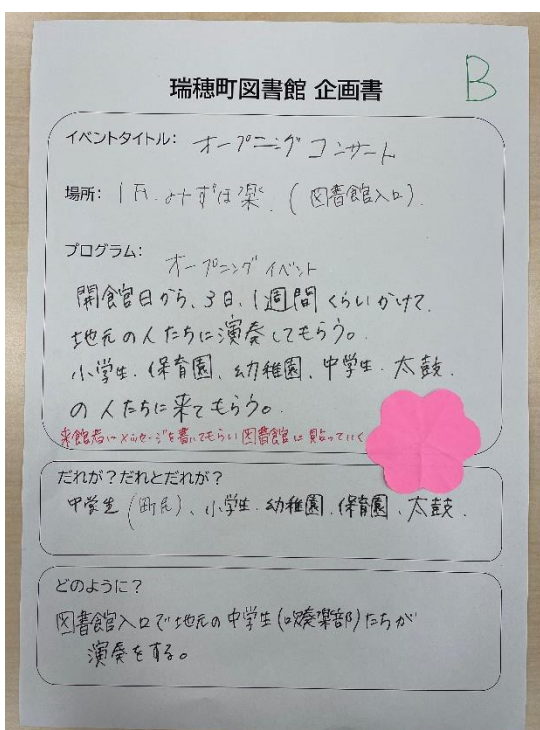 B
瑞穂町図書館 企画書
イベントタイトル: オープニングコンサート
場所: 1F. みずほ楽. (図書館入口).
プログラム:
オープニングイベント
開館日から、3日、1週間くらいかけて.
地元の人たちに演奏してもらう。
小学生. 保育園、幼稚園、中学生. 太鼓.
の人たちに来てもらう。
来館者にメッセージを書いてもらい図書館に貼っていく
だれが?だれとだれが?
中学生(町民)、小学生. 幼稚園、保育園、太鼓.
どのように?
図書館入口で地元の中学生(吹奏楽部)たちが
演奏をする。